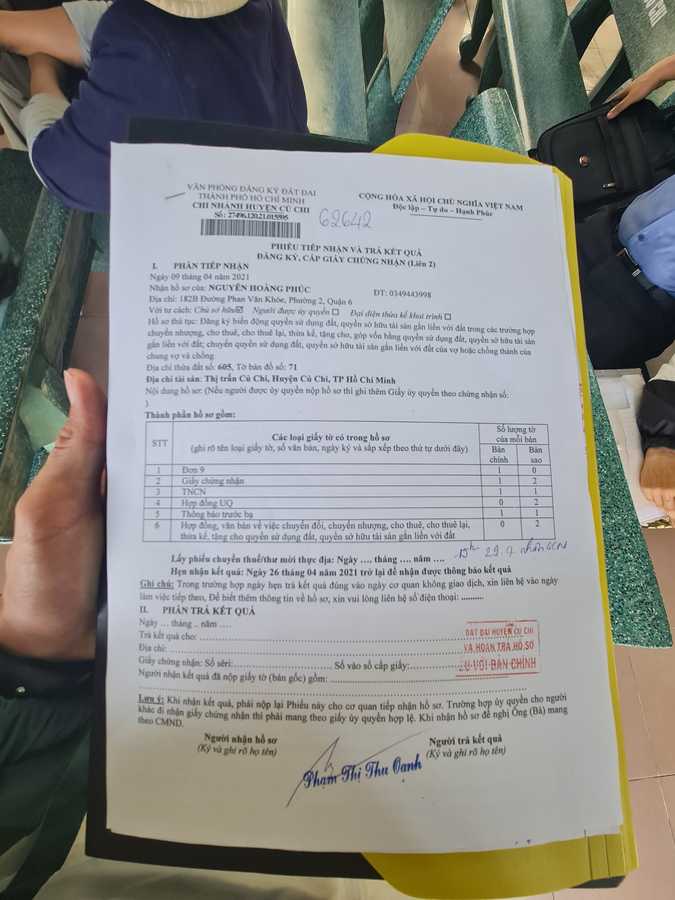 VĂN PHÒNG ĐĂNG KÝ ĐẤT ĐAI
THÀNH PHỐ HỒ CHÍ MINH
CHI NHÁNH HUYỆN CỦ CHI
Số: 27496.120.21.015595
62642
CỘNG HÒA XÃ HỘI CHỦ NGHĨA VIỆT NAM
Độc lập – Tự do – Hạnh Phúc
PHIẾU TIẾP NHẬN VÀ TRẢ KẾT QUẢ
ĐĂNG KÝ, CẤP GIẤY CHỨNG NHẬN (Liên 2)
I. PHẦN TIẾP NHẬN
Ngày 09 tháng 04 năm 2021
Nhận hồ sơ của: NGUYỄN HOÀNG PHÚC ĐT: 0349443998
Địa chỉ: 182B Đường Phan Văn Khỏe, Phường 2, Quận 6
Với tư cách: Chủ sở hữu☑ Người được ủy quyền ☐ Đại diện thừa kế khai trình ☐
Hồ sơ thủ tục: Đăng ký biến động quyền sử dụng đất, quyền sở hữu tài sản gắn liền với đất trong các trường hợp
chuyển nhượng, cho thuê, cho thuê lại, thừa kế, tặng cho, góp vốn bằng quyền sử dụng đất, quyền sở hữu tài sản
gắn liền với đất; chuyển quyền sử dụng đất, quyền sở hữu tài sản gắn liền với đất của vợ hoặc chồng thành của
chung vợ và chồng
Địa chỉ thửa đất số: 605, Tờ bản đồ số: 71
Địa chỉ tài sản: Thị trấn Củ Chi, Huyện Củ Chi, TP Hồ Chí Minh
Nội dung hồ sơ: (Nếu người được ủy quyền nộp hồ sơ thì ghi thêm Giấy ủy quyền chứng nhận số:
)
Thành phần hồ sơ gồm:
STT Các loại giấy tờ có trong hồ sơ Số lượng tờ của mỗi bản
(ghi rõ tên loại giấy tờ, số văn bản, ngày ký và sắp xếp theo thứ tự dưới đây) Bản chính Bản sao
1 Đơn 9 1 0
2 Giấy chứng nhận 1 2
3 TNCN 1 1
4 Hợp đồng UQ 0 2
5 Thông báo trước bạ 1 1
6 Hợp đồng, văn bản về việc chuyển đổi, chuyển nhượng, cho thuê, cho thuê lại, 0 2
thừa kế, tặng cho quyền sử dụng đất, quyền sở hữu tài sản gắn liền với đất
Lấy phiếu chuyển thuế/thư mời thực địa: Ngày .... tháng .... năm ....
Hẹn nhận kết quả: Ngày 26 tháng 04 năm 2021 trở lại để nhận được thông báo kết quả
Ghi chú: Trong trường hợp ngày hẹn trả kết quả đúng vào ngày cơ quan không giao dịch, xin liên hệ vào ngày
làm việc tiếp theo, Để biết thêm thông tin về hồ sơ, xin vui lòng liên hệ số điện thoại: .........
II. PHẦN TRẢ KẾT QUẢ
Ngày ... tháng .. năm ....
Trả kết quả cho:
Địa chỉ:
Giấy chứng nhận: Số sêri: Số vào sổ cấp giấy:
Người nhận kết quả đã nộp giấy tờ (bản gốc) gồm:
ĐẤT ĐAI HUYỆN CỦ CHI
VÀ HOÀN TRẢ HỒ SƠ
VỚI BẢN CHÍNH
Lưu ý: Khi nhận kết quả, phải nộp lại Phiếu này cho cơ quan tiếp nhận hồ sơ. Trường hợp ủy quyền cho người
khác đi nhận giấy chứng nhận thì phải mang theo giấy ủy quyền hợp lệ. Khi nhận hồ sơ đề nghị Ông (Bà) mang
theo CMND.
Người nhận hồ sơ
(Ký và ghi rõ họ tên)
Người trả kết quả
(Ký và ghi rõ họ tên)
Phạm Thị Thu Oanh